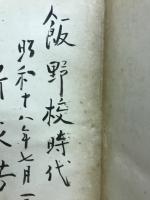 飯野校時代
昭和十八年七月一